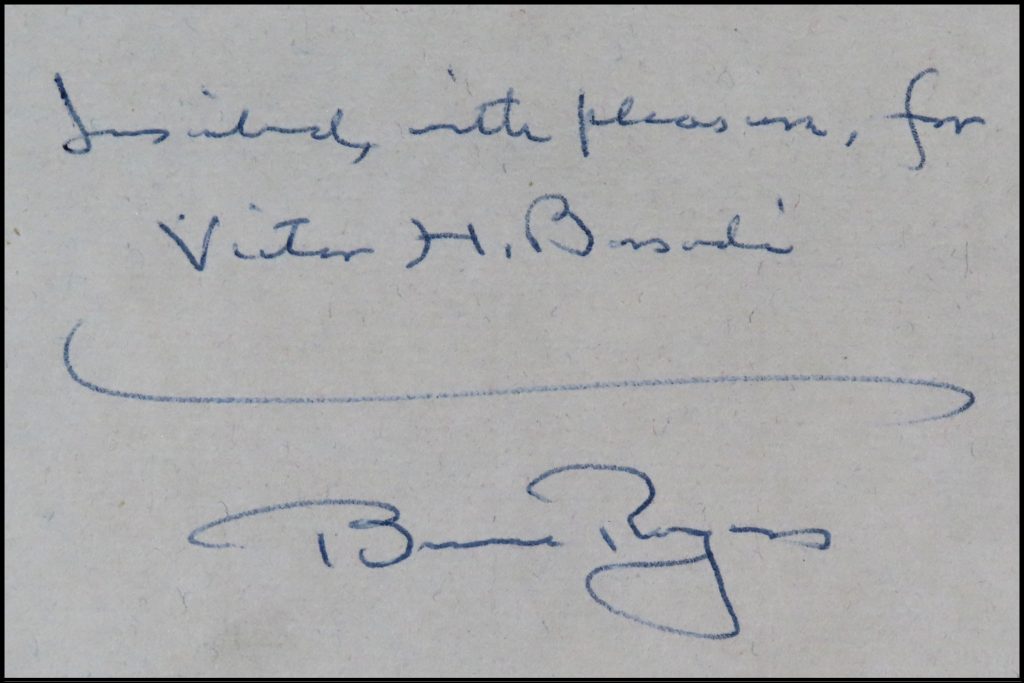 Inscribed, with pleasure, for
Victor H. Borsodi
Bruce Rogers